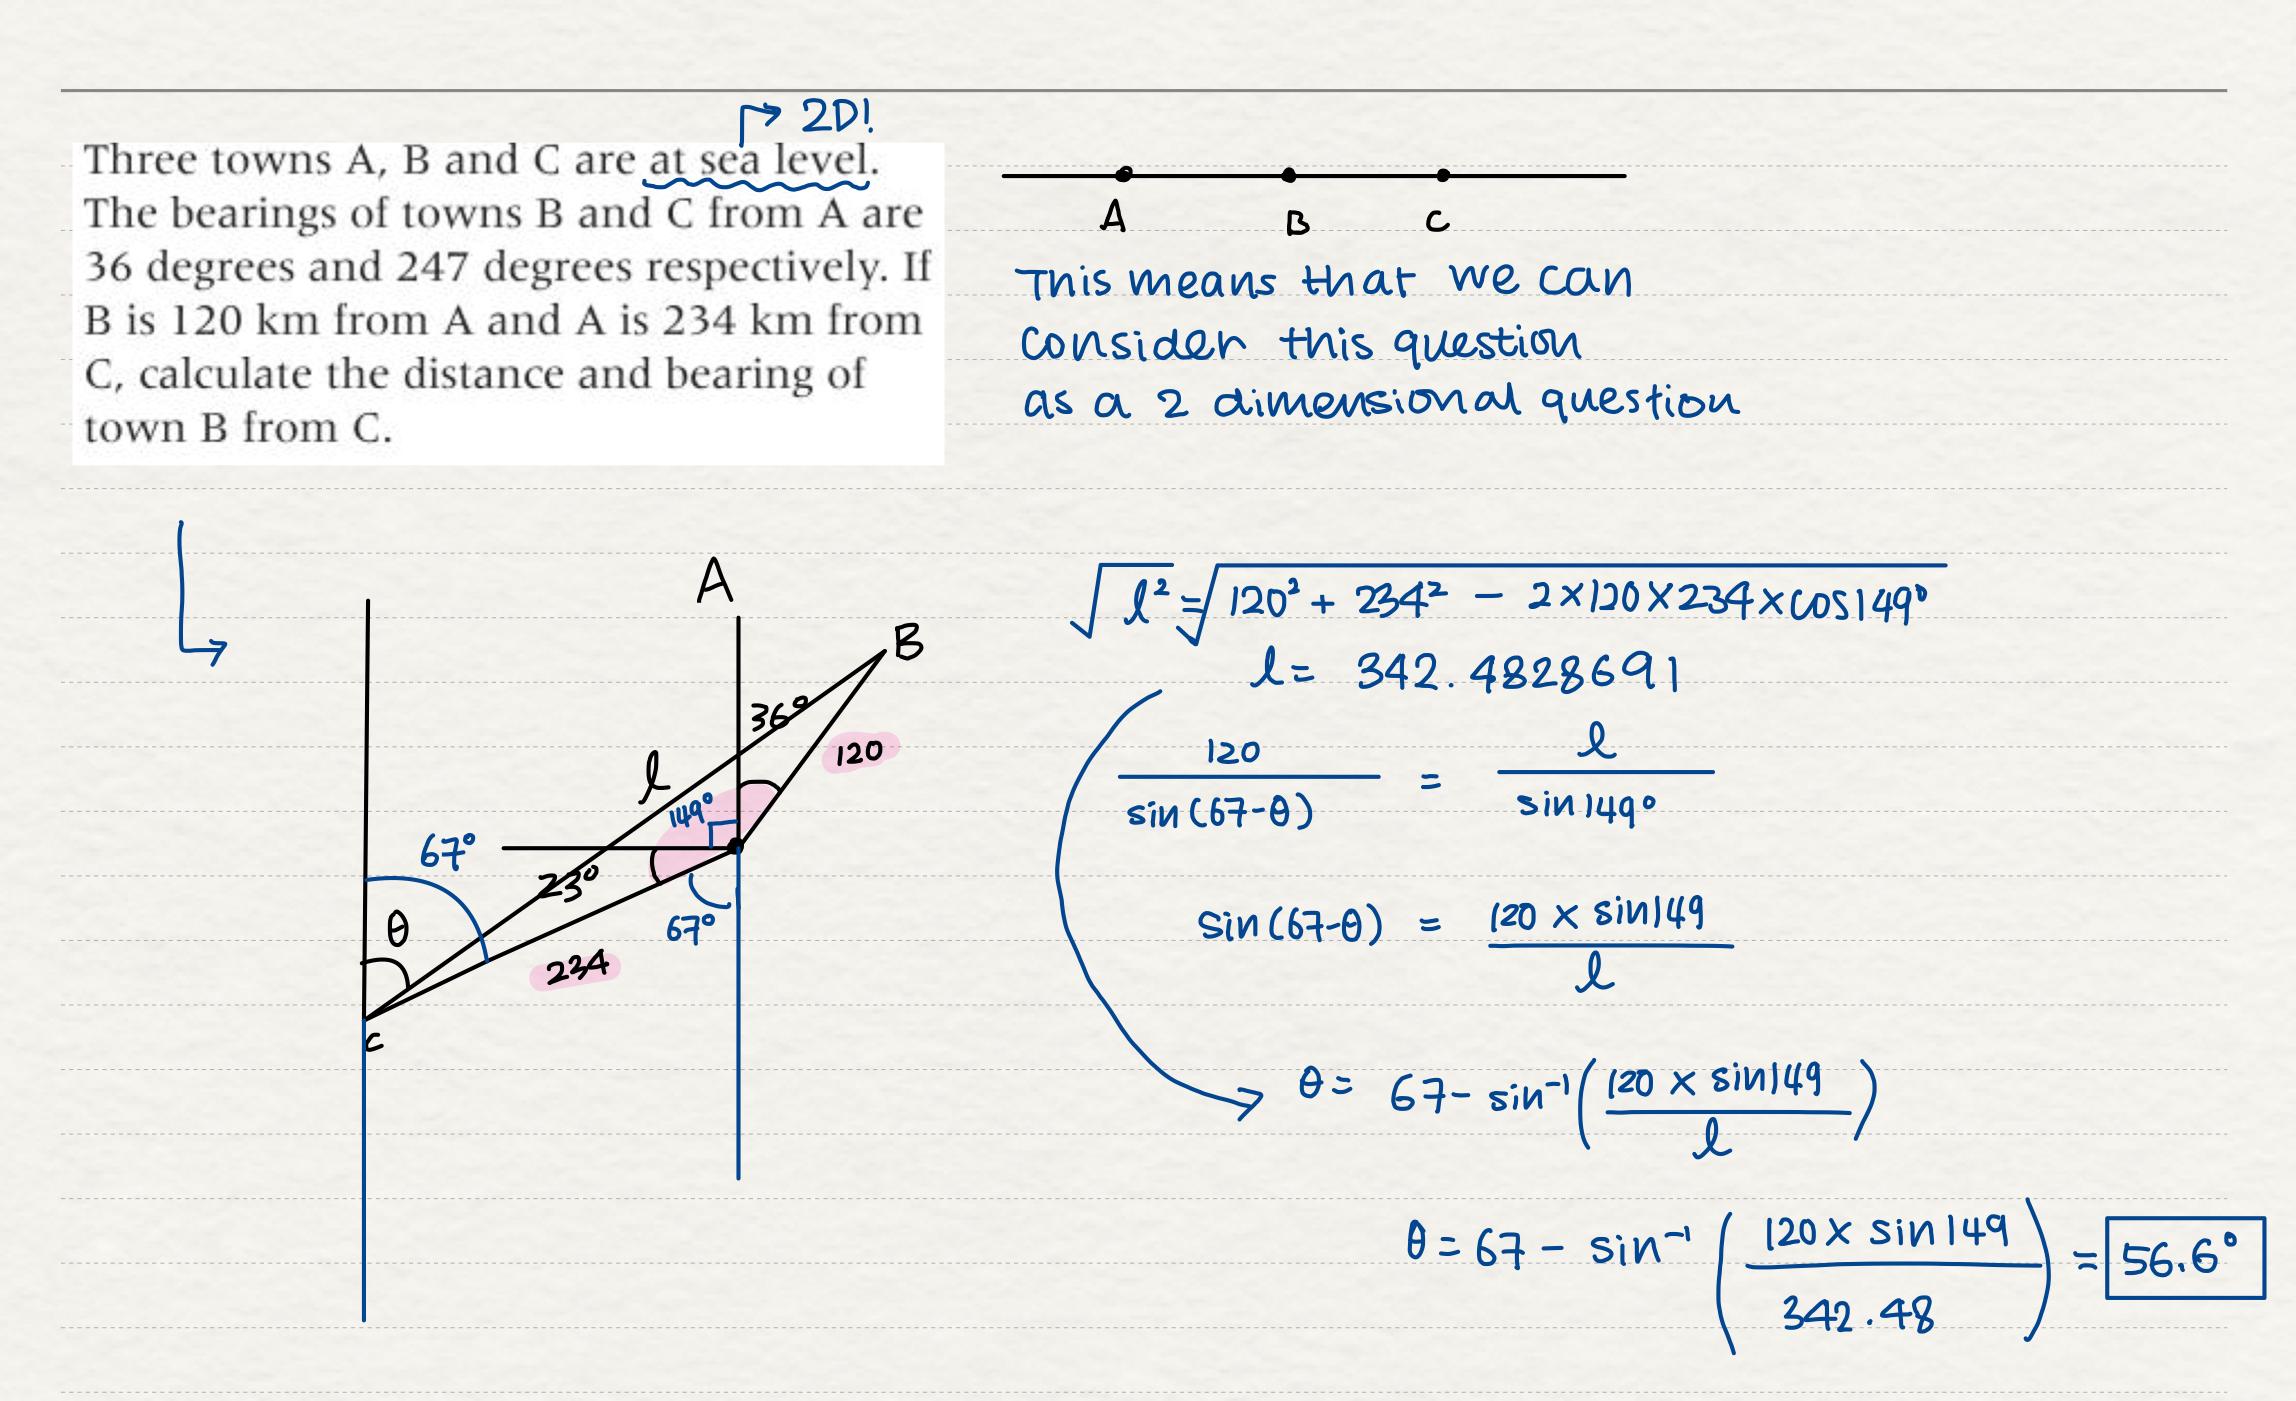 → 2D!
Three towns A, B and C are at sea level.
The bearings of towns B and C from A are
36 degrees and 247 degrees respectively. If
B is 120 km from A and A is 234 km from
C, calculate the distance and bearing of
town B from C.
A B C
This means that we can
consider this question
as a 2 dimensional question
A
B
36°
120
l
149°
67°
23°
67°
θ
234
C
√l² = √120² + 234² − 2×120×234×cos149°
l = 342.4828691
120/sin(67-θ) = l/sin149°
sin(67-θ) = 120 × sin149/l
θ = 67 - sin⁻¹(120 × sin149/l)
θ = 67 − sin⁻¹(120 × sin149/342.48) = 56.6°